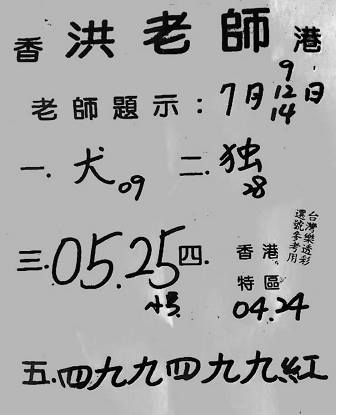 香洪老師港
老師題示：7月9.12.14日
一.犬09 二.独28
三.05.25 四.香港特區04.24
台灣樂透彩
選號參考用
五.四九九四九九紅